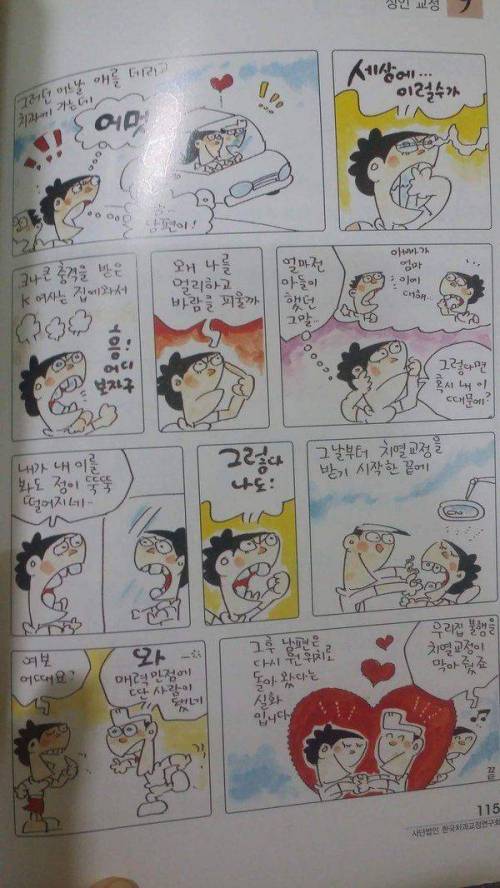 성인 교정
9
그러던 어느날 애를 데리고
치과에 가는데
어멋
남편이!
세상에...
이럴수가
크나큰 충격을 받은
K 여사는 집에와서
흐음!
어디
보자구
왜 나를
멀리하고
바람을 피울까
얼마전
아들이
했던
그말...
아빠가
엄마
이에
대해..
그렇다면
혹시 내 이
때문에?
내가 내 이를
봐도 정이 뚝뚝
떨어지네..
그렇다
나도!
그날부터 치열교정을
받기 시작한 끝에
여보
어때요?
와
매력 만점에
딴 사람이
됐네
그후 남편은
다시 원위치로
돌아 왔다는
실화
입니다
우리집 불행을
치열교정이
막아 줬죠
끝
115
사단법인 한국치과교정연구회